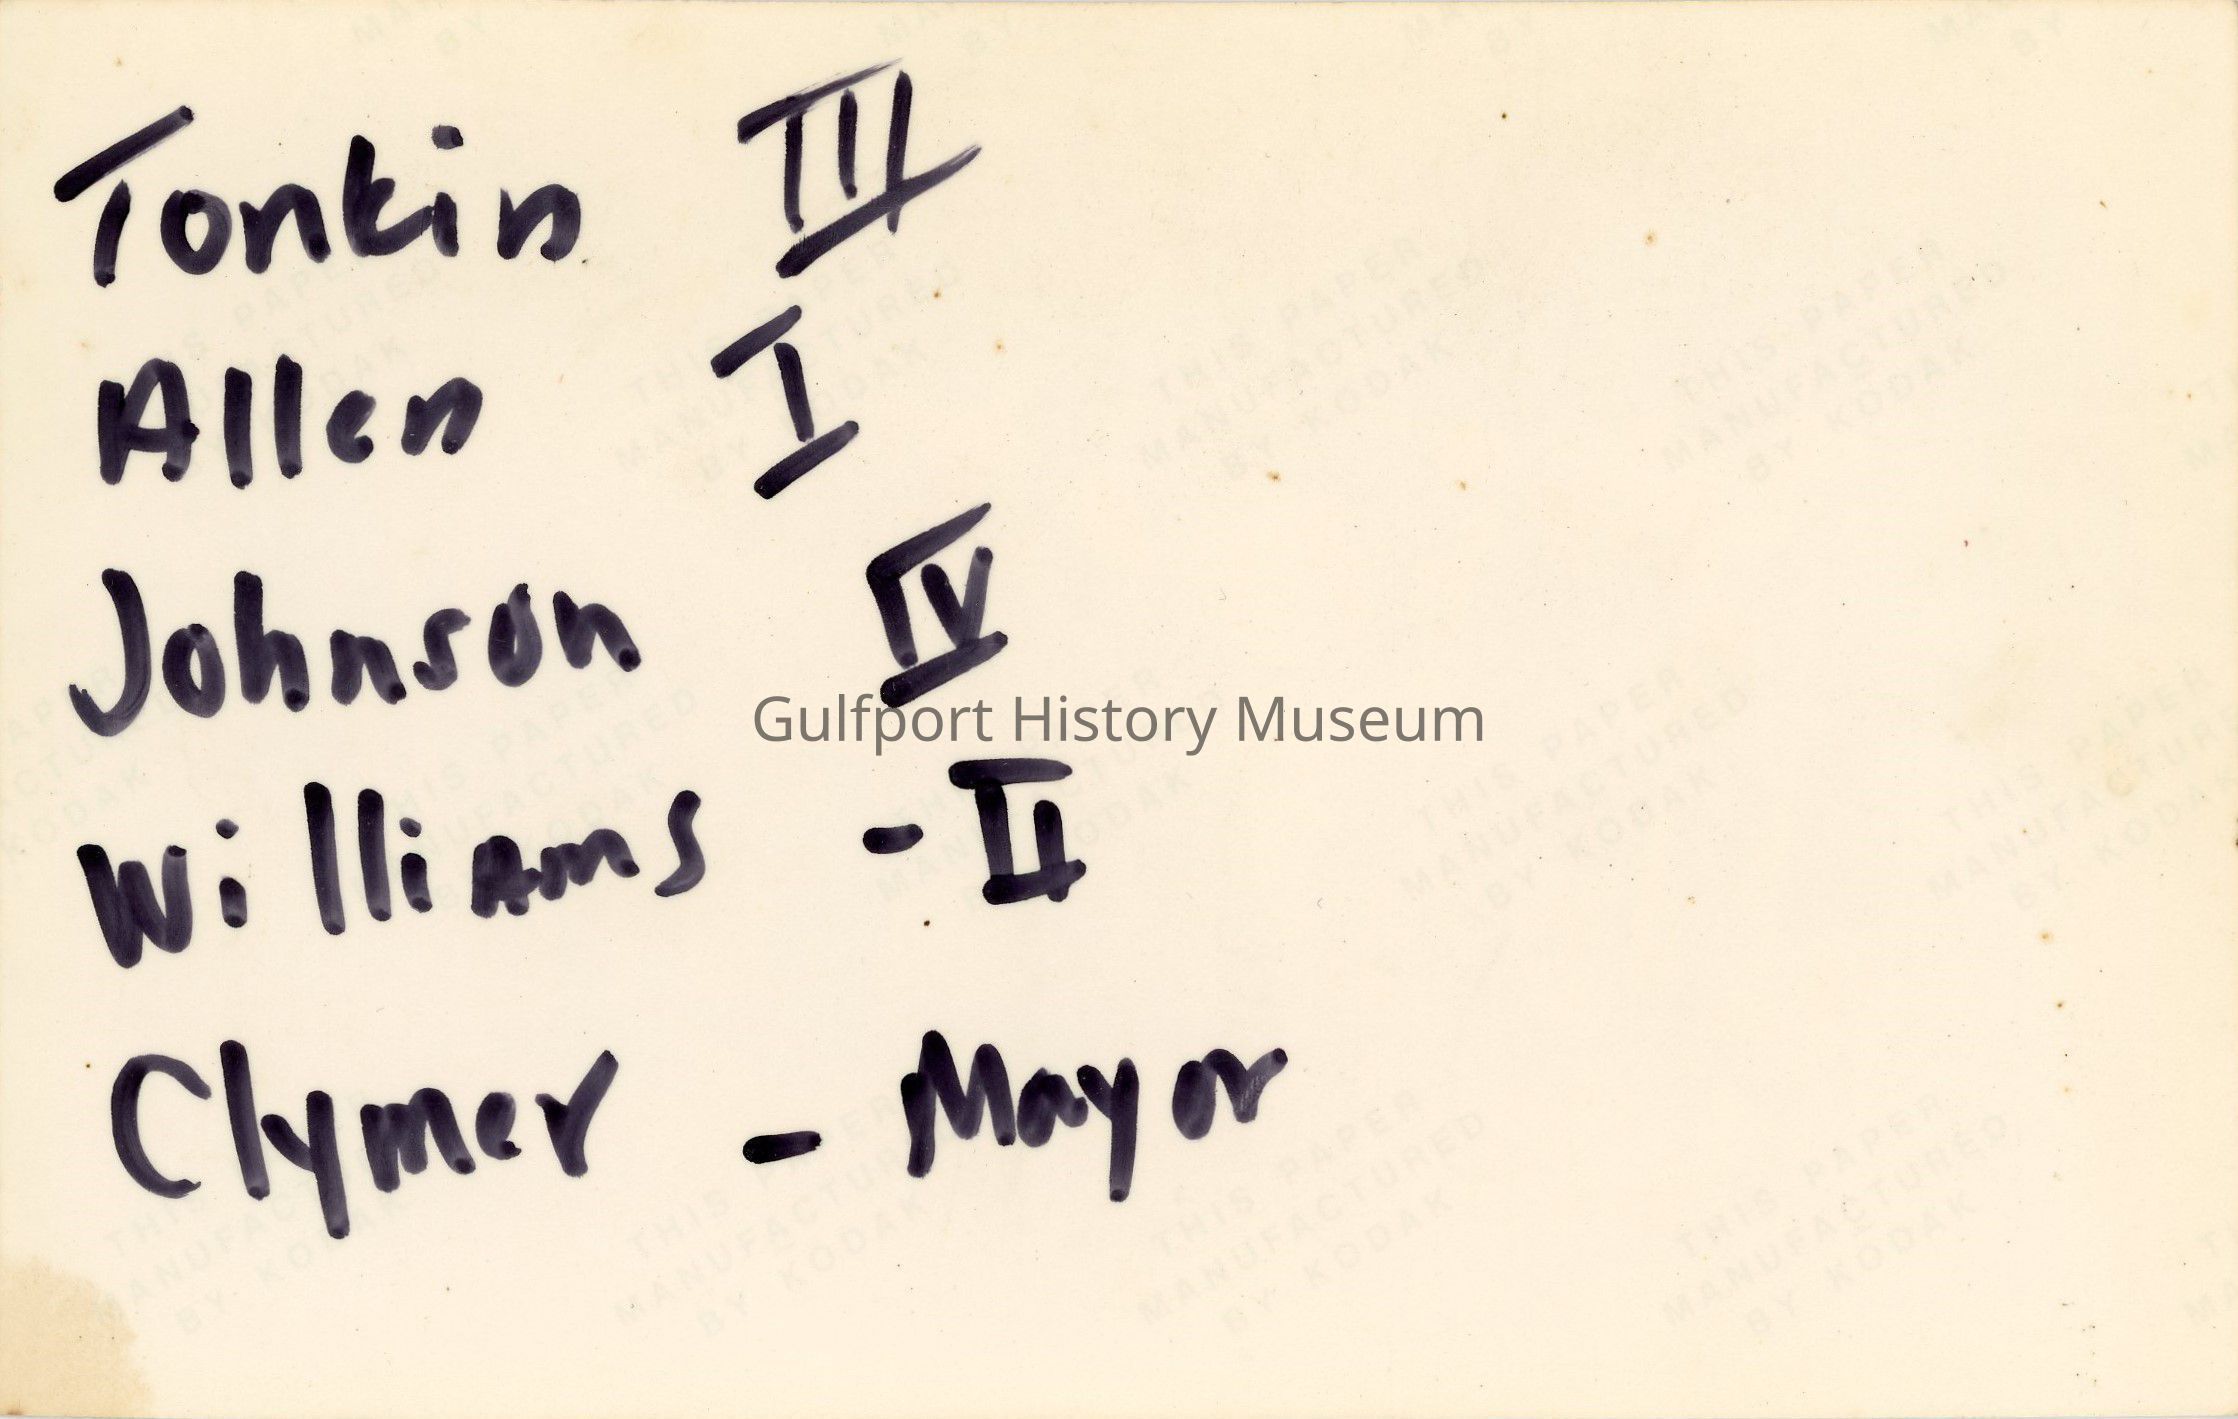 Tonkin III
Allen I
Johnson IV
Gulfport History Museum
Williams - II
Clymer - Mayor
THIS PAPER
MANUFACTURED
BY KODAK